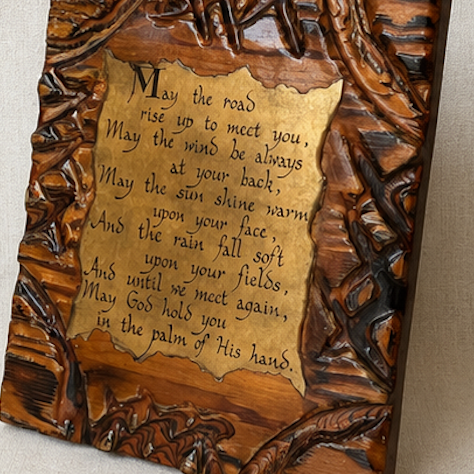 May the road
rise up to meet you,
May the wind be always
at your back,
May the sun shine warm
upon your face,
And the rain fall soft
upon your fields,
And until we meet again,
May God hold you
in the palm of His hand.